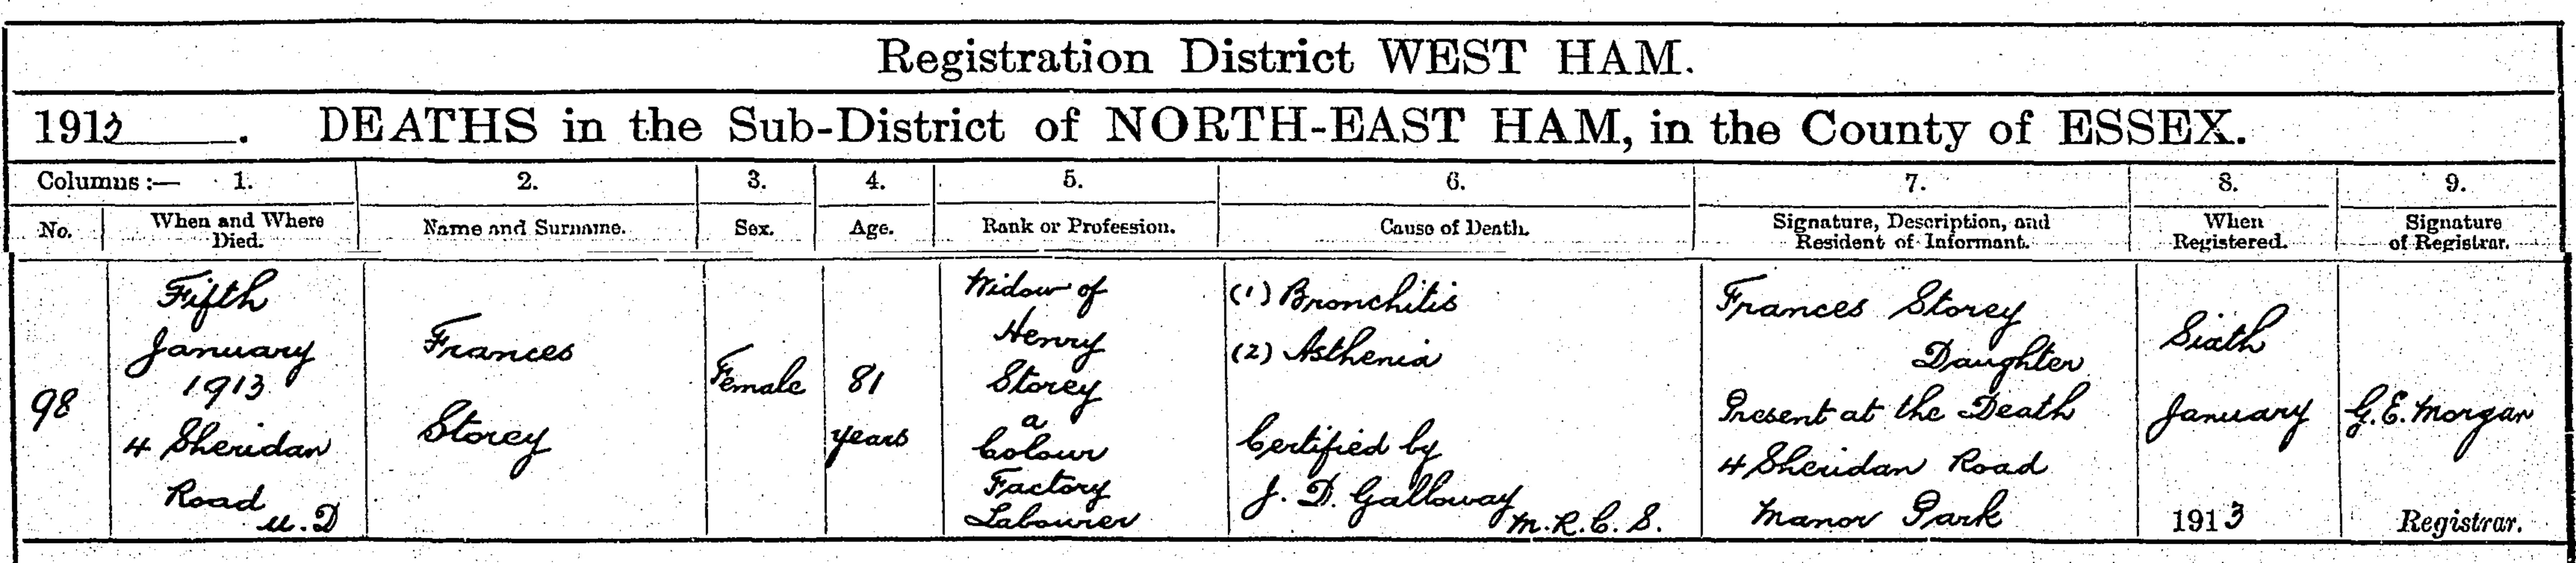 Registration District WEST HAM.
1913. DEATHS in the Sub-District of NORTH-EAST HAM, in the County of ESSEX.
Columns :— 1. 2. 3. 4. 5. 6. 7. 8. 9.
No. When and Where Died. Name and Surname. Sex. Age. Rank or Profession. Cause of Death. Signature, Description, and Resident of Informant. When Registered. Signature of Registrar.
98
Fifth
January
1913
4 Sheridan
Road
U.D
Frances
Storey
Female
81
years
Widow of
Henry
Storey
a
Colour
Factory
Labourer
(1) Bronchitis
(2) Asthenia
Certified by
J. D. Galloway
M.R.C.S.
Frances Storey
Daughter
Present at the Death
4 Sheridan Road
Manor Park
Sixth
January
1913
G.E. Morgan
Registrar.